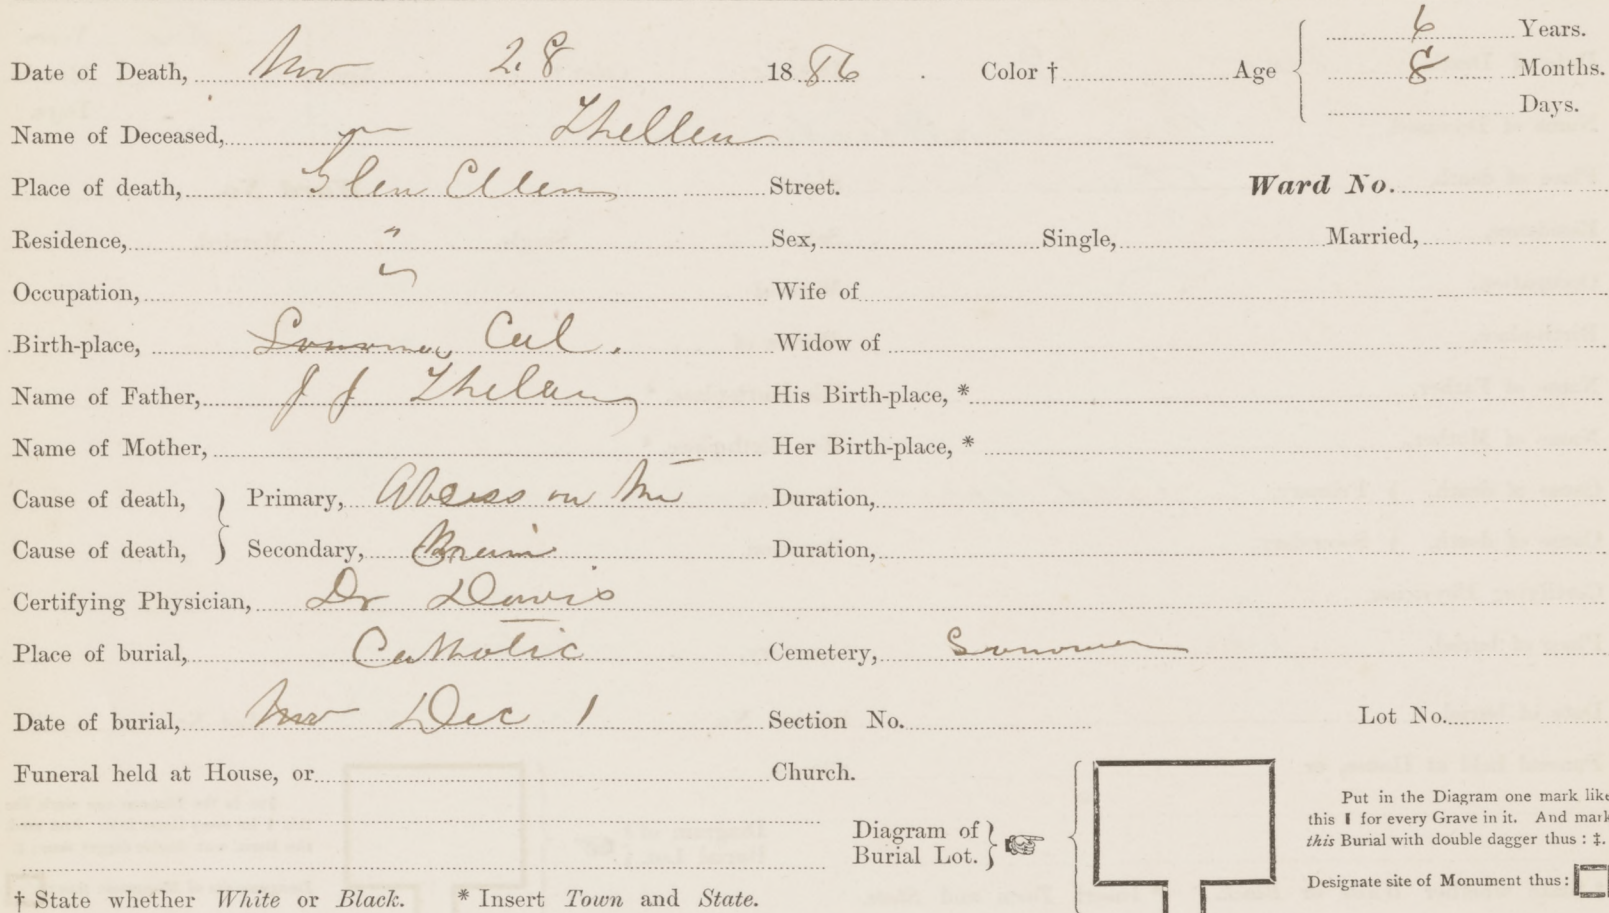 6 Years.
Date of Death, Nov 28 1886. Color † Age 8 Months.
Days.
Name of Deceased, — Thellen
Place of death, Glen Ellen Street. Ward No.
Residence, " Sex, Single, Married,
Occupation, Wife of
Birth-place, Sonoma, Cal. Widow of
Name of Father, J J Thelen His Birth-place, *
Name of Mother, Her Birth-place, *
Cause of death, } Primary, Abcess on the Duration,
Cause of death, } Secondary, Brain Duration,
Certifying Physician, Dr Davis
Place of burial, Catholic Cemetery, Sonoma
Date of burial, Nov Dec 1 Section No. Lot No.
Funeral held at House, or Church.
Put in the Diagram one mark like
this ❙ for every Grave in it. And mark
this Burial with double dagger thus : ‡.
Diagram of
Burial Lot. }
Designate site of Monument thus :
† State whether White or Black. * Insert Town and State.